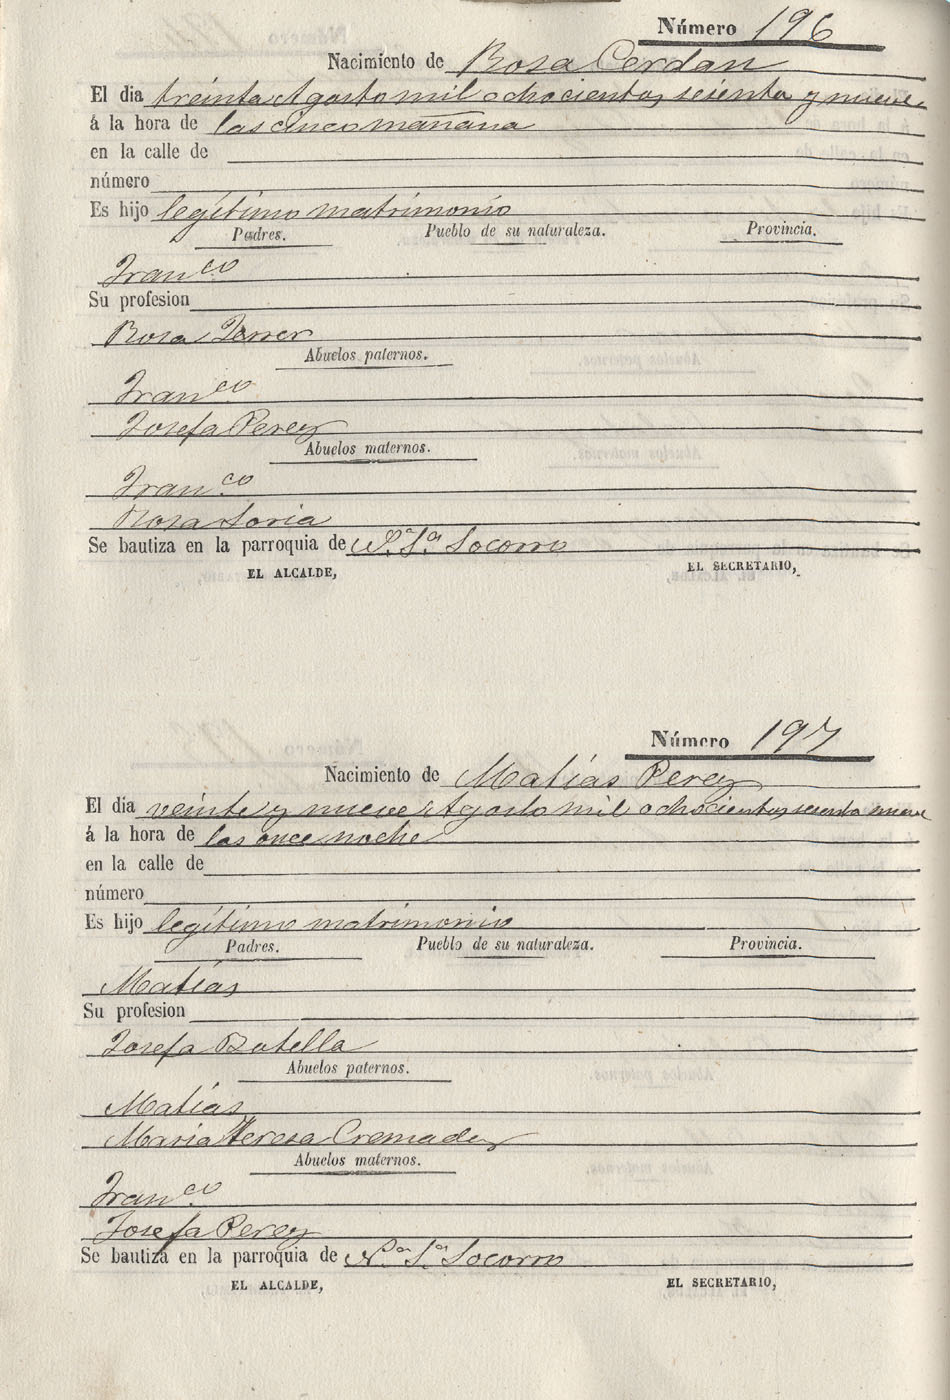 Número 196
Nacimiento de Rosa Cerdan
El dia treinta Agosto mil ochocientos sesenta y nueve
á la hora de las cinco mañana
en la calle de
número
Es hijo legítimo matrimonio
Padres. Pueblo de su naturaleza. Provincia.
Franco
Su profesion
Rosa Ferrer
Abuelos paternos.
Franco
Josefa Perez
Abuelos maternos.
Franco
Rosa Soria
Se bautiza en la parroquia de Nª Sª Socorro
EL ALCALDE, EL SECRETARIO,
Número 197
Nacimiento de Matías Perez
El dia veinte y nueve Agosto mil ochocientos sesenta nueve
á la hora de las once noche
en la calle de
número
Es hijo legítimo matrimonio
Padres. Pueblo de su naturaleza. Provincia.
Matías
Su profesion
Josefa Botella
Abuelos paternos.
Matías
Maria Teresa Cremades
Abuelos maternos.
Franco
Josefa Perez
Se bautiza en la parroquia de Nª Sª Socorro
EL ALCALDE, EL SECRETARIO,